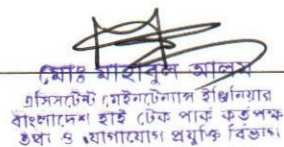 মোঃ মাহাবুল আলম
এসিসটেন্ট মেইনটেন্যান্স ইঞ্জিনিয়ার
বাংলাদেশ হাই টেক পার্ক কর্তৃপক্ষ
তথ্য ও যোগাযোগ প্রযুক্তি বিভাগ।